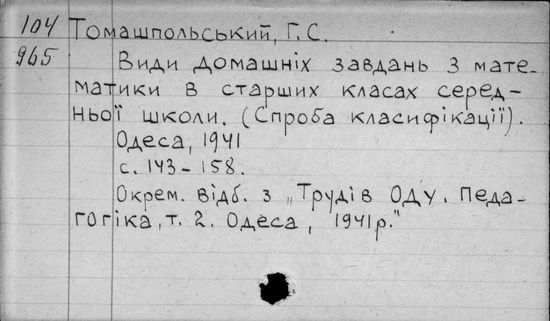 104 Томашпольський, Г. С.
965 Види домашніх завдань з мате-
матики в старших класах серед-
ньої школи. (Спроба класифікації).
Одеса, 1941
с. 143-158.
Окрем. відб. з „Трудів ОДУ. Педа-
гогіка, т. 2. Одеса, 1941р."